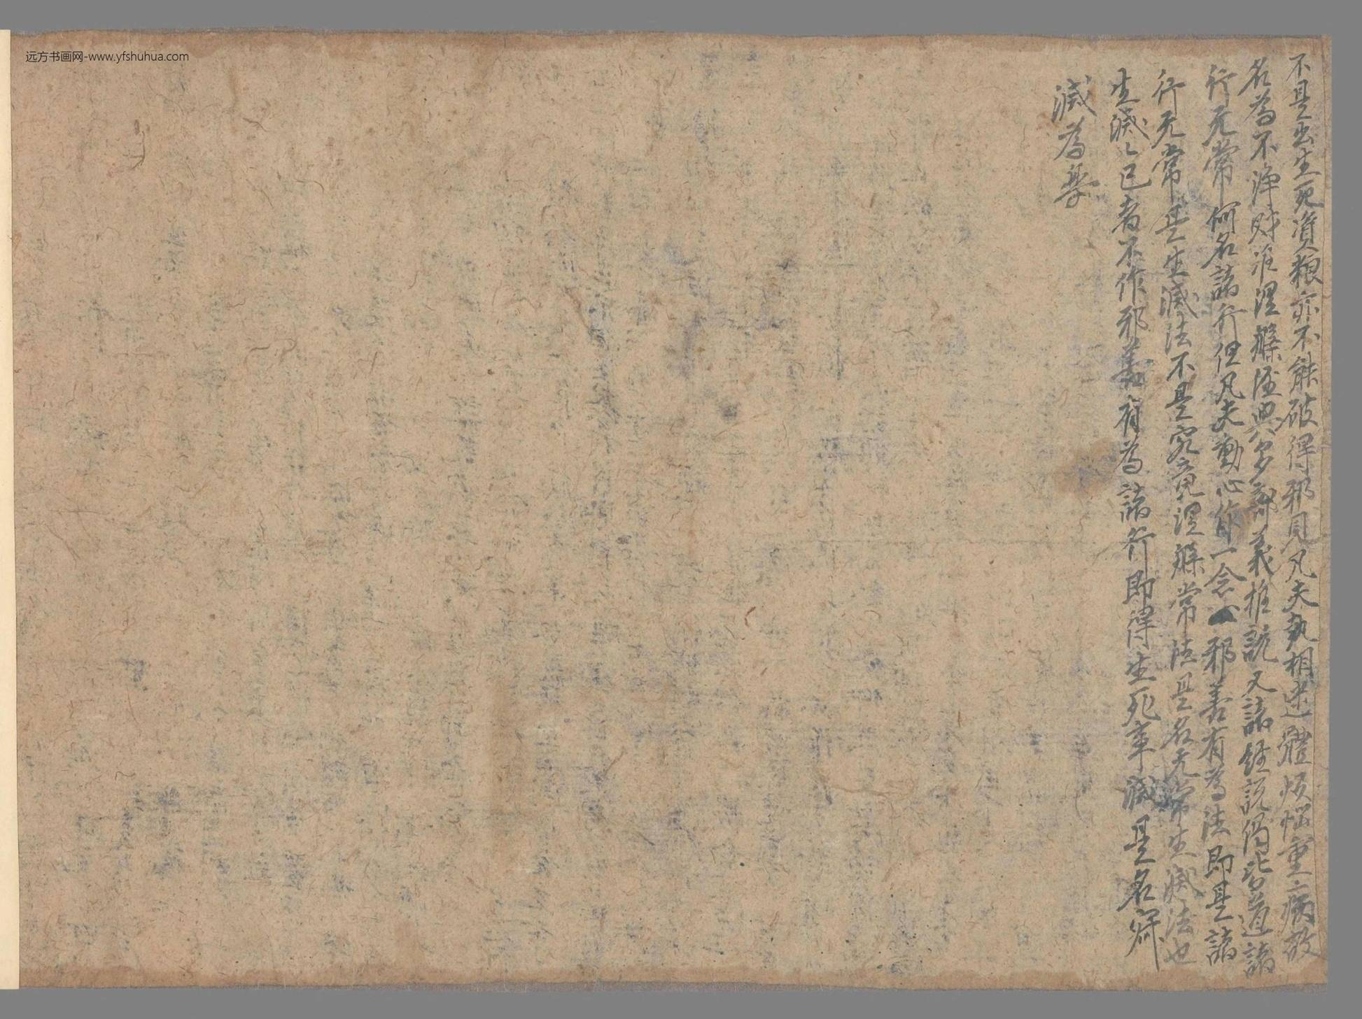 远方书画网-www.yfshuhua.com
不是出生死資粮亦不能破得邪見凡夫執相迷體煩惱重病故
名為不淨財准涅槃經典多義推說又諸經說偈皆道諸
行无常何名諸行但凡夫動心作一念邪善有為法即是諸
行无常是生滅法不是究竟涅槃常法是名无常生滅法也
生滅〻已者不作邪善有為諸行即得生死事滅是名寂
滅為樂